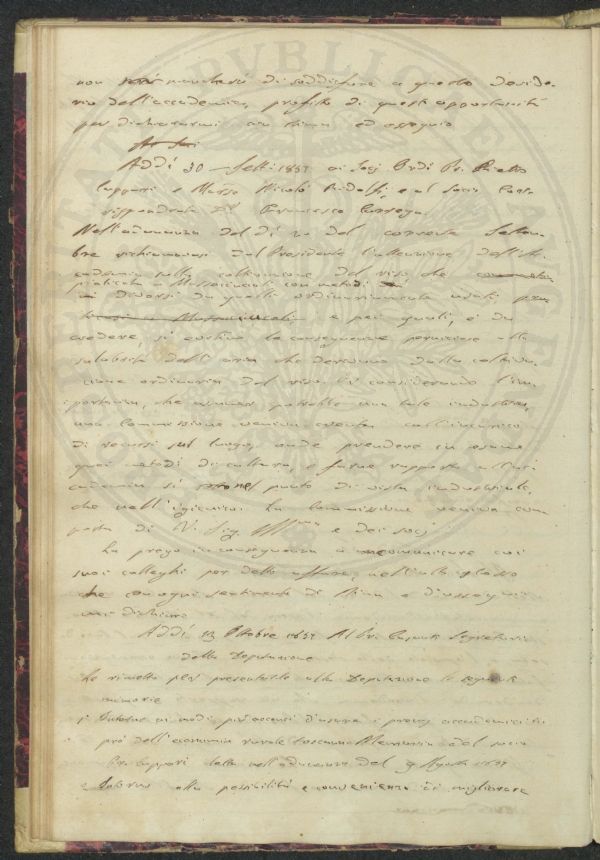 non mancherà di soddisfare a questo deside-
rio dell'accademia, profitto di quest'opportunità
per dichiararmi con stima ed ossequio
Addì 30 Sett. 1857 ai Socj Ordi Pr. Pietro
Cuppari e Marso Nicolò Ridolfi, e al socio Corr
rispondente Dr Francesco
Nell'adunanza del dì 20 del corrente Settem
bre richiamava dal Presidente l'attenzione dell'Ac
cademia sulla coltivazione del riso che
praticata a Massaciuccoli con metodi
diversi da quelli ordinariamente usati,
e pei quali, è da
credere, si evitino le conseguenze perniciose alla
salubrità dell'aria che derivano dalla coltiva
zione ordinaria del riso. E considerando l'im
portanza, che potrebbe una tale industria,
una Commissione veniva creata coll'incarico
di recarsi sul luogo, onde prendere in esame
quei metodi di cultura, e farne rapporto all'ac
cademia sì nel punto di vista industriale,
che nell'igienico. La Commissione veniva com
posta di V. Sig. Illma e dei socj
La prego in conseguenza a comunicare coi
suoi colleghi per detto affare, nell'atto stesso
che con ogni sentimento di stima e d'ossequio
mi dichiaro
Addì 13 Ottobre 1857 Al Pr. Cuppari Segretario
della Deputazione
Le rimetto per presentarle alla Deputazione le seguenti
memorie
1° Intorno ai modi più acconci d'usare i prove accademici in
prò dell'economia rurale toscana Memoria del socio
Pr. Cuppari letta nell'adunanza del 9 Agosto 1857
2 Intorno alla possibilità e convenienza di migliorare